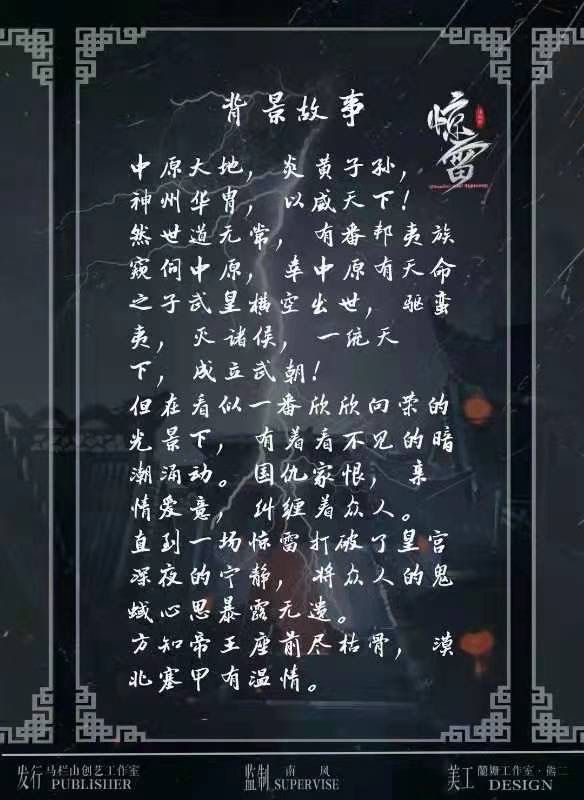 背景故事
惊雷
中原大地，炎黄子孙，
神州华胄，以威天下！
然世道无常，有番邦夷族
窥伺中原，幸中原有天命
之子武皇横空出世，驱蛮
夷，灭诸侯，一统天
下，成立武朝！
但在看似一番欣欣向荣的
光景下，有着看不见的暗
潮涌动。国仇家恨，亲
情爱意，纠缠着众人。
直到一场惊雷打破了皇宫
深夜的宁静，将众人的鬼
蜮心思暴露无造。
方知帝王座前尽枯骨，漠
北塞甲有温情。
发行 马栏山创艺工作室 PUBLISHER
监制 南风 SUPERVISE
美工 蘭姗工作室·熊二 DESIGN